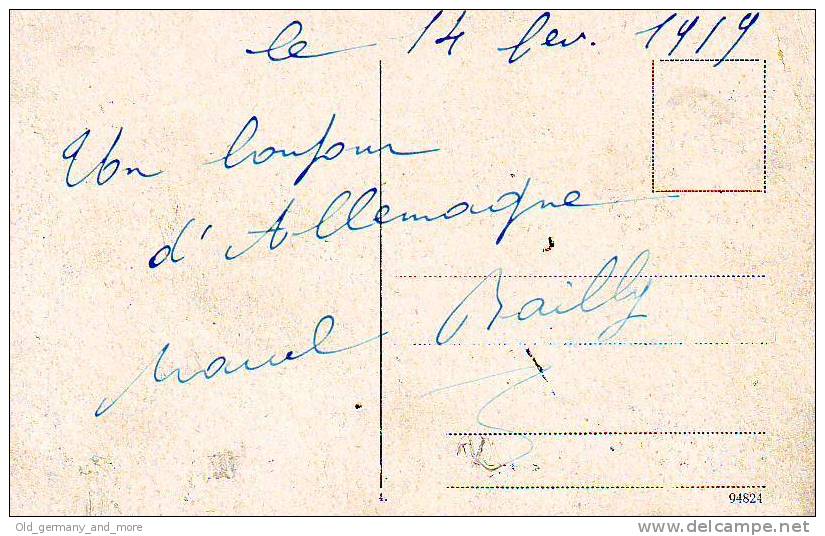 le 14 fev. 1919
Un bonjour
d'Allemagne
Marcel Bailly
4.
94824
Old_germany_and_more
delcampe.net